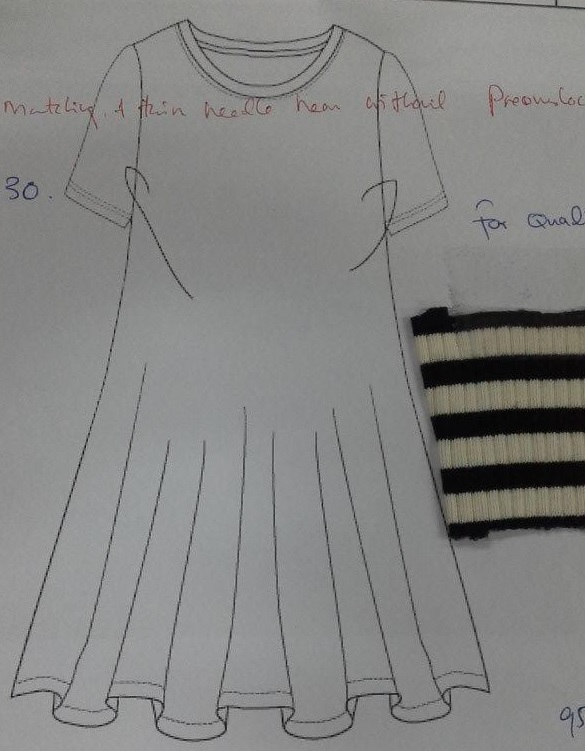 Matching & thin needle hem without
30.
For Qual
95